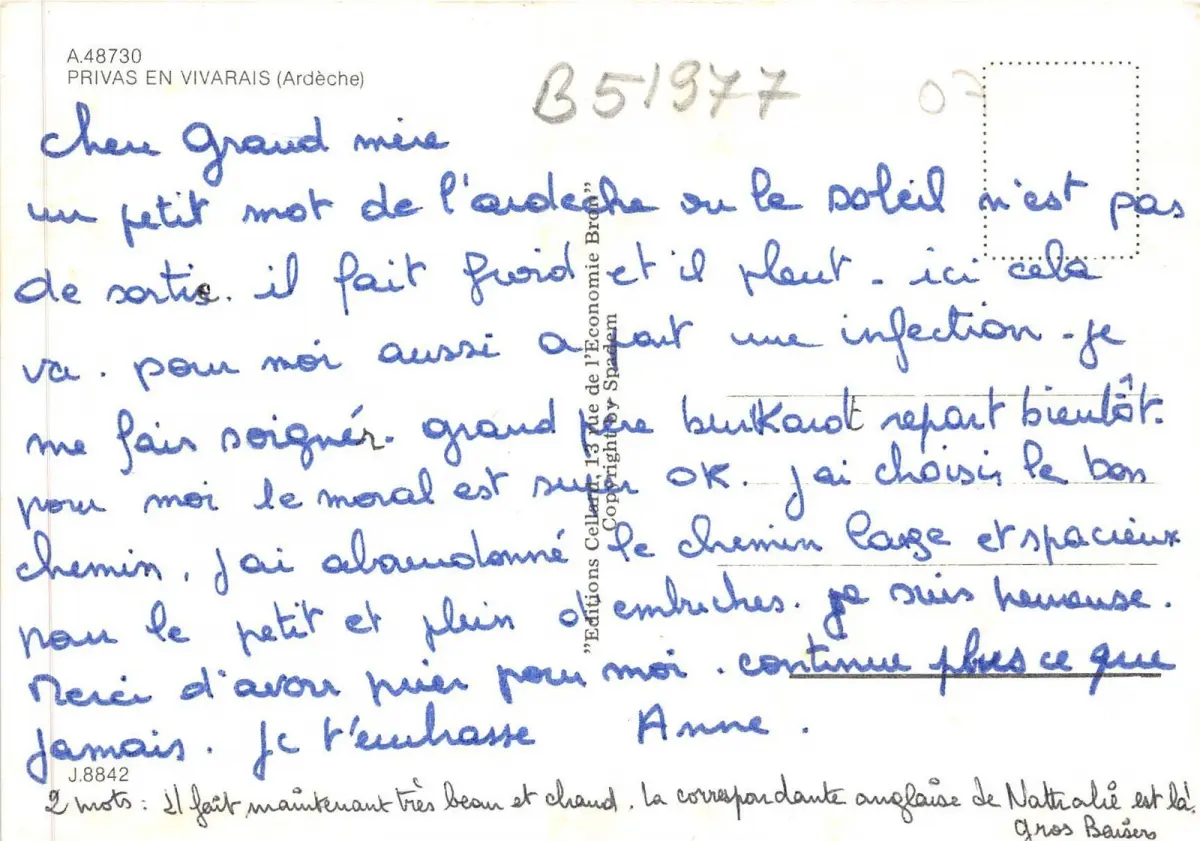 A.48730
PRIVAS EN VIVARAIS (Ardèche)
B 51977
07
cher Grand mère
un petit mot de l'ardèche ou le soleil n'est pas
de sortie. il fait froid et il pleut - ici cela
va. pour moi aussi a part une infection - je
me fais soignér. grand père burkardt repart bientôt.
pour moi le moral est super OK. j'ai choisis le bon
chemin, j'ai abandonné le chemin large et spacieux
pour le petit et plein d'embuches. je suis heureuse.
Merci d'avoir prier pour moi. continue plus ce que
jamais. je t'embrasse Anne.
"Editions Cellard, 13 rue de l'Economie Bron"
Copyright by Spadem
J.8842
2 mots : Il fait maintenant très beau et chaud. La correspondante anglaise de Nathalie est là.
gros Baisers